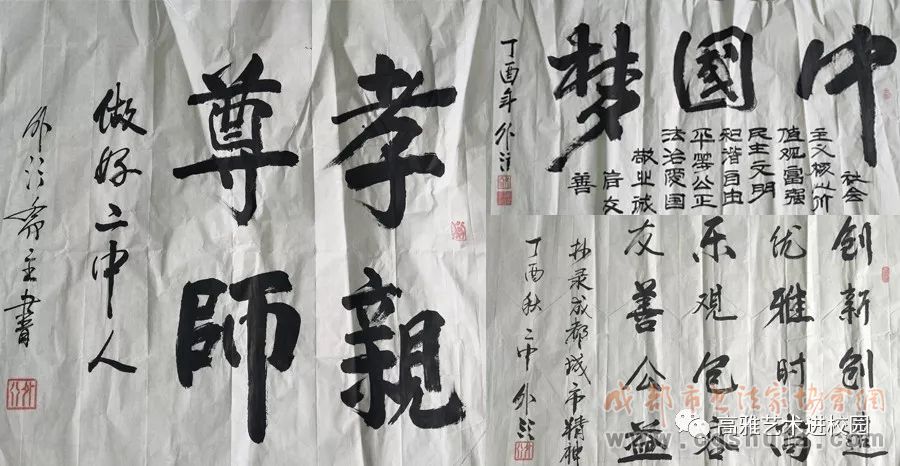 孝親
尊師
做好二中人
外 斋主書
中國梦
社会
主义核心价
值观富强
民主文明
和谐自由
平等公正
法治爱国
敬业诚
信友
善
丁酉年 外
创新创造
优雅时尚
乐观包容
友善公益
抄录成都城市精神
丁酉秋 二中 外
成都市书法家协会网
高雅艺术进校园